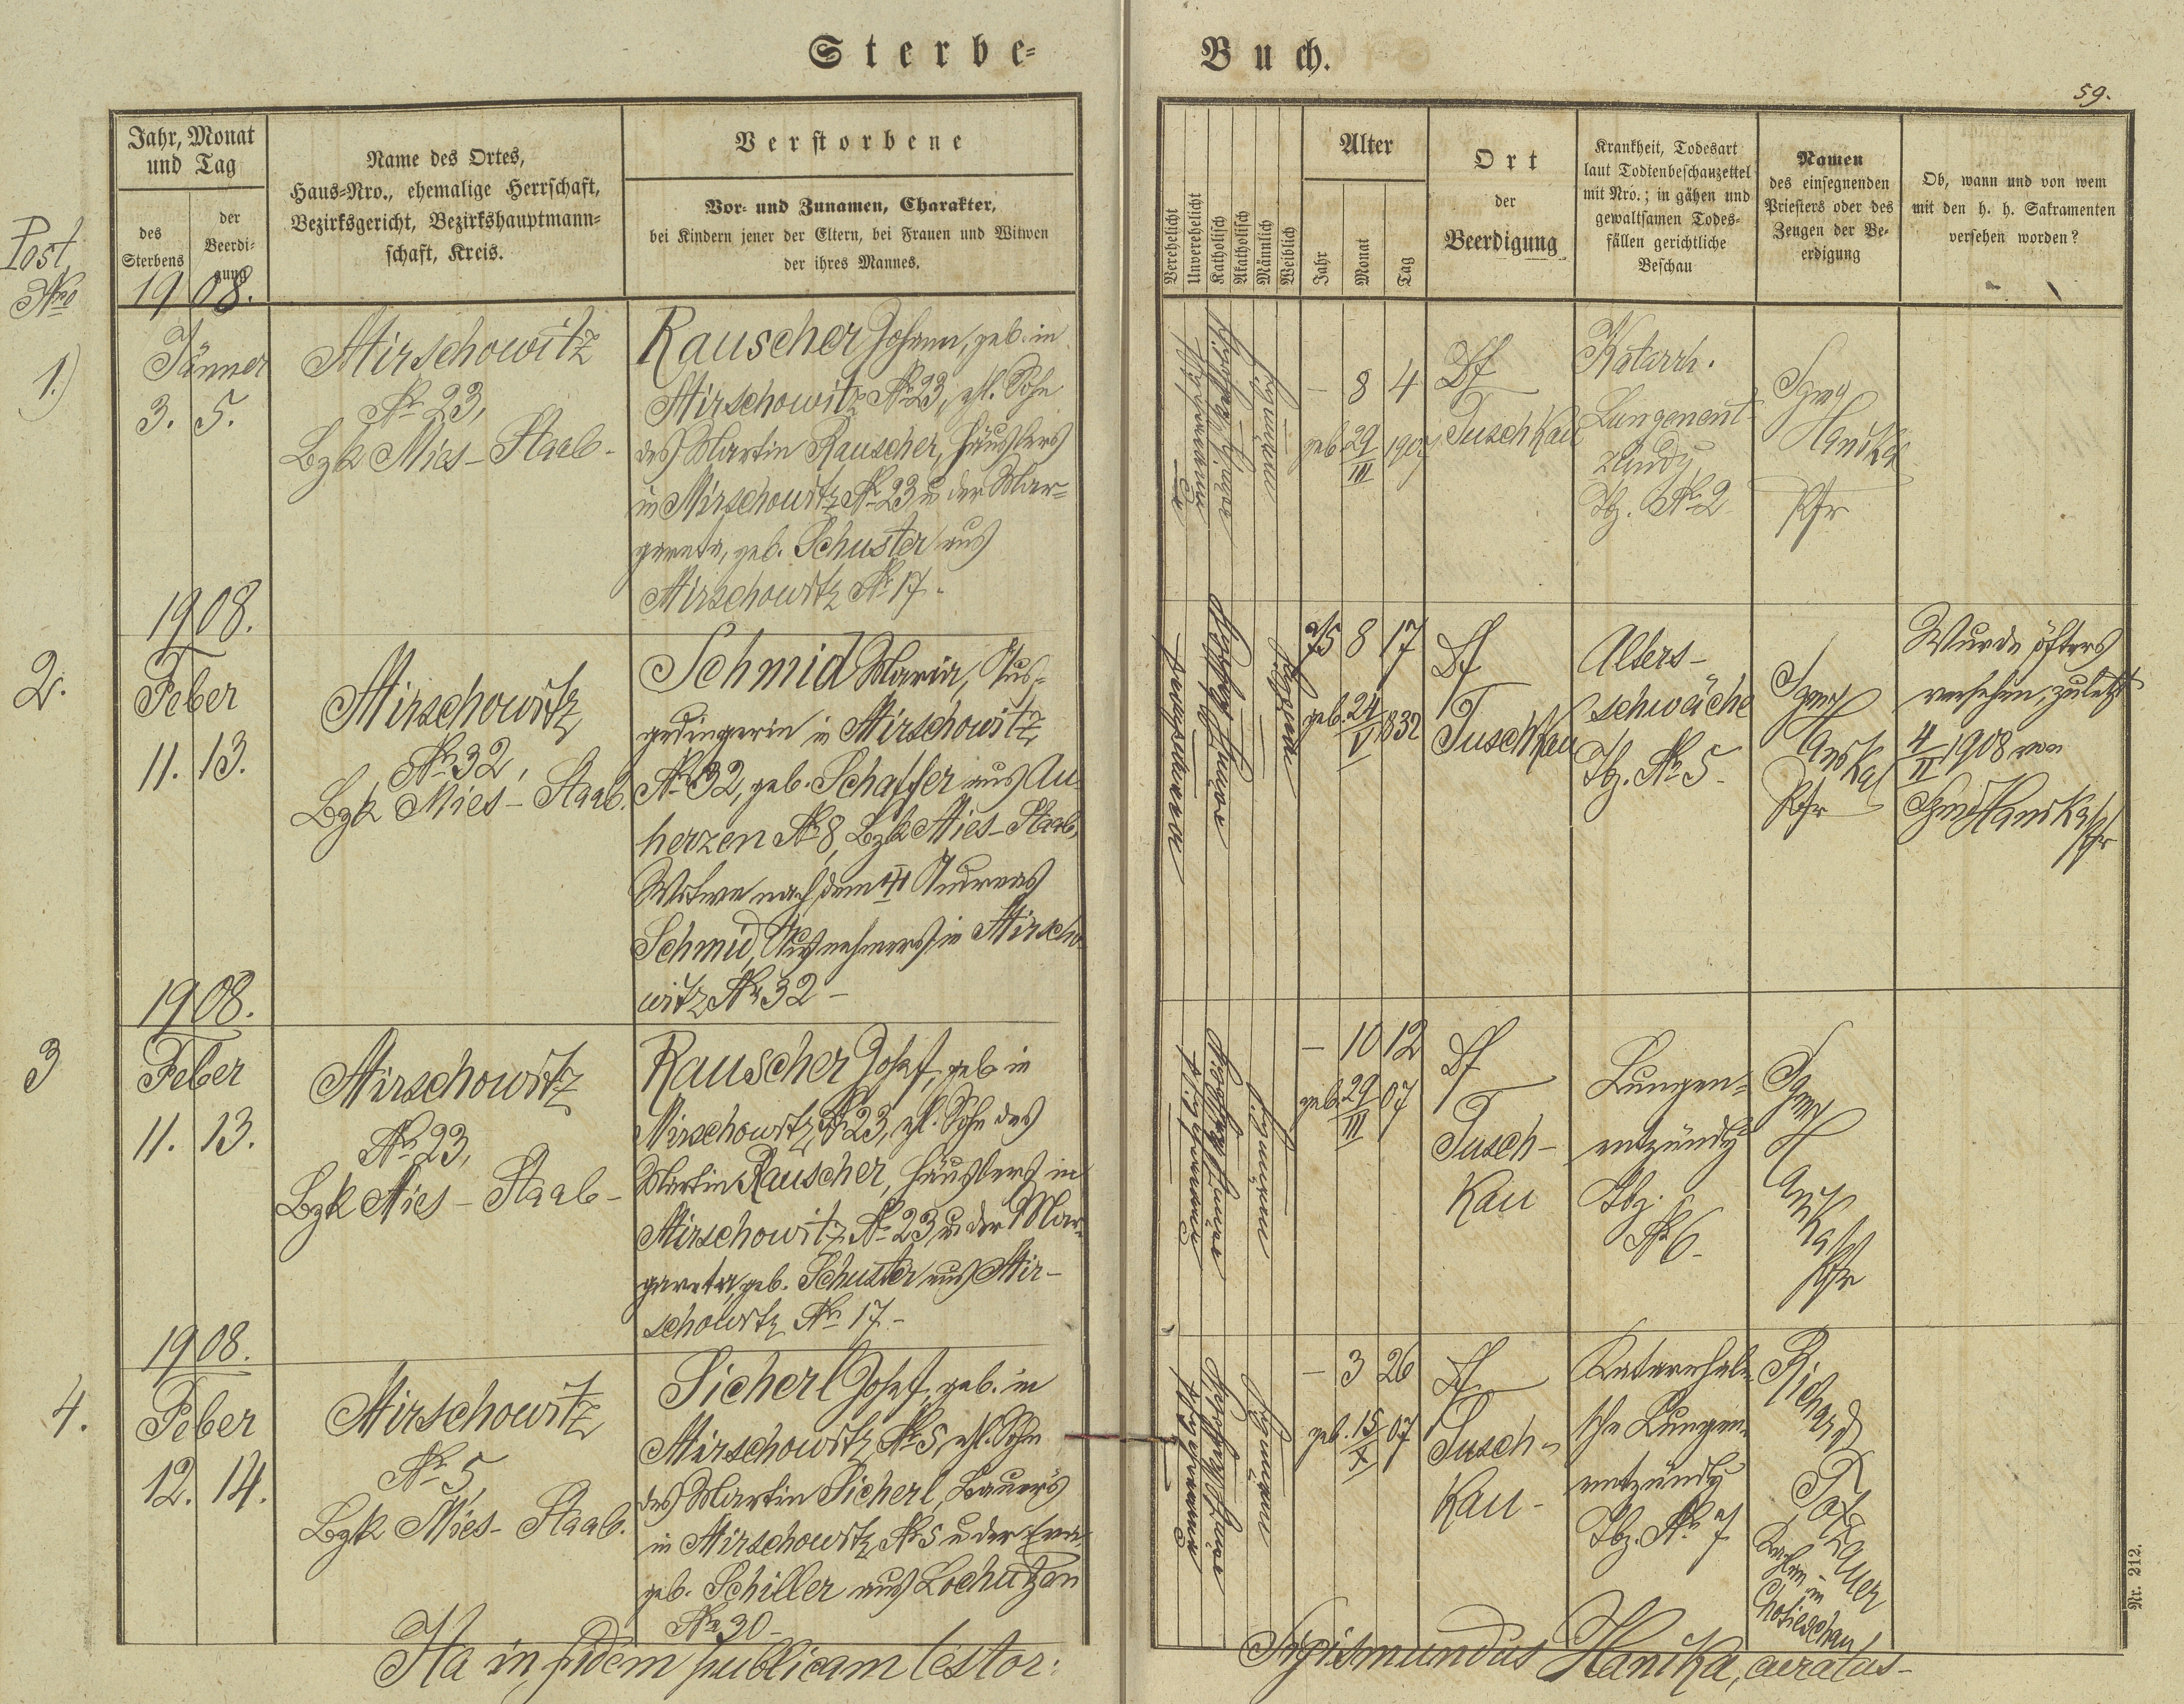 Sterbe-
Buch.
59.
Jahr, Monat
und Tag
des
Sterbens
der
Beerdi-
gung
Name des Ortes,
Haus-Nro., ehemalige Herrschaft,
Bezirksgericht, Bezirkshauptmann-
schaft, Kreis.
Verstorbene
Vor- und Zunamen, Charakter,
bei Kindern jener der Eltern, bei Frauen und Witwen
der ihres Mannes.
Verehelicht
Unverehelicht
Katholisch
Akatholisch
Männlich
Weiblich
Alter
Jahr
Monat
Tag
Ort
der
Beerdigung
Krankheit, Todesart
laut Todtenbeschauzettel
mit Nro.; in gähen und
gewaltsamen Todes-
fällen gerichtliche
Beschau
Namen
des einsegnenden
Priesters oder des
Zeugen der Be-
erdigung
Ob, wann und von wem
mit den h. h. Sakramenten
versehen worden?
Post
Nro
1908.
1.)
Jänner
3. 5.
Mirschowitz
No 23,
Bzk Mies-Staab-
Rauscher Johann, geb. in
Mirschowitz No 23, ehl. Sohn
des Martin Rauscher, Häuslers
in Mirschowitz No 23 u. der Mar-
gareta, geb. Schuster aus
Mirschowitz No 17.
- 8 4
geb. 29/III 1907
Df
Tuschkau
Katarrh.
Lungenent-
zündg
Tbz. No 2
Sigmd
Hanika
Pfr
1908.
2.
Feber
11. 13.
Mirschowitz
No 32,
Bzk Mies-Staab.
Schmid Maria, Aus-
gedingerin in Mirschowitz
No 32, geb. Schaffer aus Au-
herzen No 8, Bzk Mies-Staab,
Witwe nach dem Andreas
Schmid, Ausnehmers in Mirscho-
witz No 32-
75 8 17
geb. 24/V 1832
Df
Tuschkau
Alters-
schwäche
Tbz. No 5-
Sigmd
Hanika
Pfr
Wurde öfters
versehen, zuletzt
4/II 1908 von
Sigmd Hanika Pfr
1908.
3
Feber
11. 13.
Mirschowitz
No 23,
Bzk Mies-Staab-
Rauscher Josef, geb. in
Mirschowitz, No 23, ehl. Sohn des
Martin Rauscher, Häuslers in
Mirschowitz No 23 u. der Mar-
gareta, geb. Schuster aus Mir-
schowitz No 17-
- 10 12
geb. 29/III 07
Df
Tusch-
kau
Lungen-
entzündg
Tbz.
No 6-
Sigmd
Hanika
Pfr
1908.
4.
Feber
12. 14.
Mirschowitz
No 5,
Bzk Mies-Staab.
Sicherl Josef, geb. in
Mirschowitz No 5, ehl. Sohn
des Martin Sicherl, Bauers
in Mirschowitz No 5 u. der Eva
geb. Schiller aus Lochutzen
No 30-
- 3 26
geb. 15/X 07
Df
Tusch-
kau-
Katarrhali-
sche Lungen-
entzündg
Tbz. No 7
Richard
Kaplan in
Chotieschau
Ita in fidem publicam testor:
Sigismundus Hanika, curatus-
Nr. 212.